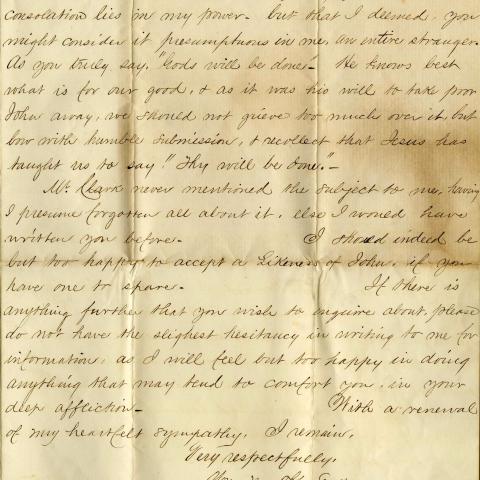 consolation lies in my power. but that I deemed, you
might consider it presumptuous in me, an entire stranger.
As you truly say, "Gods will be done". He knows best
what is for our good, & as it was his will to take poor
John away, we should not grieve too much over it, but
bow with humble submission, & recollect that Jesus has
taught us to say "Thy will be done." -
Mr. Clark never mentioned the subject to me, having
I presume forgotten all about it, else I would have
written you before - I should indeed be
but too happy to accept a Likeness of John, if you
have one to spare - If there is
anything further that you wish to inquire about, please
do not have the slighest hesitancy in writing to me for
information, as I will feel but too happy in doing
anything that may tend to comfort you, in your
deep affliction - With a renewal
of my heartfelt sympathy, I remain,
Very respectfully,